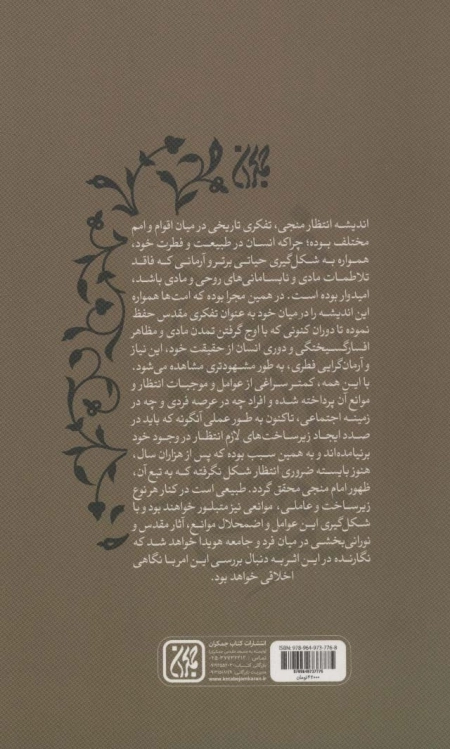 جمکران
اندیشه انتظار منجی، تفکری تاریخی در میان اقوام و امم
مختلف بوده؛ چراکه انسان در طبیعت و فطرت خود،
همواره به شکل‌گیری حیاتی برتر و آرمانی که فاقد
تلاطمات مادی و نابسامانی‌های روحی و مادی باشد،
امیدوار بوده است. در همین مجرا بوده که امت‌ها همواره
این اندیشه را در میان خود به عنوان تفکری مقدس حفظ
نموده تا دوران کنونی که با اوج گرفتن تمدن مادی و مظاهر
افسارگسیختگی و دوری انسان از حقیقت خود، این نیاز
و آرمان‌گرایی فطری، به طور مشهودتری مشاهده می‌شود.
با این همه، کمتر سراغی از عوامل و موجبات انتظار و
موانع آن پرداخته شده و افراد چه در عرصه فردی و چه در
زمینه اجتماعی، تاکنون به طور عملی آنگونه که باید در
صدد ایجاد زیرساخت‌های لازم انتظار در وجود خود
برنیامده‌اند و به همین سبب بوده که پس از هزاران سال،
هنوز بایسته ضروری انتظار شکل نگرفته که به تبع آن،
ظهور امام منجی محقق گردد. طبیعی است در کنار هر نوع
زیرساخت و عاملی، موانعی نیز متبلور خواهند بود و با
شکل‌گیری این عوامل و اضمحلال موانع، آثار مقدس و
نورانی‌بخشی در میان فرد و جامعه هویدا خواهد شد که
نگارنده در این اثر به دنبال بررسی این امر با نگاهی
اخلاقی خواهد بود.
انتشارات کتاب جمکران
www.ketabejamkaran.ir
جمکران
ISBN: 978-964-973-776-8